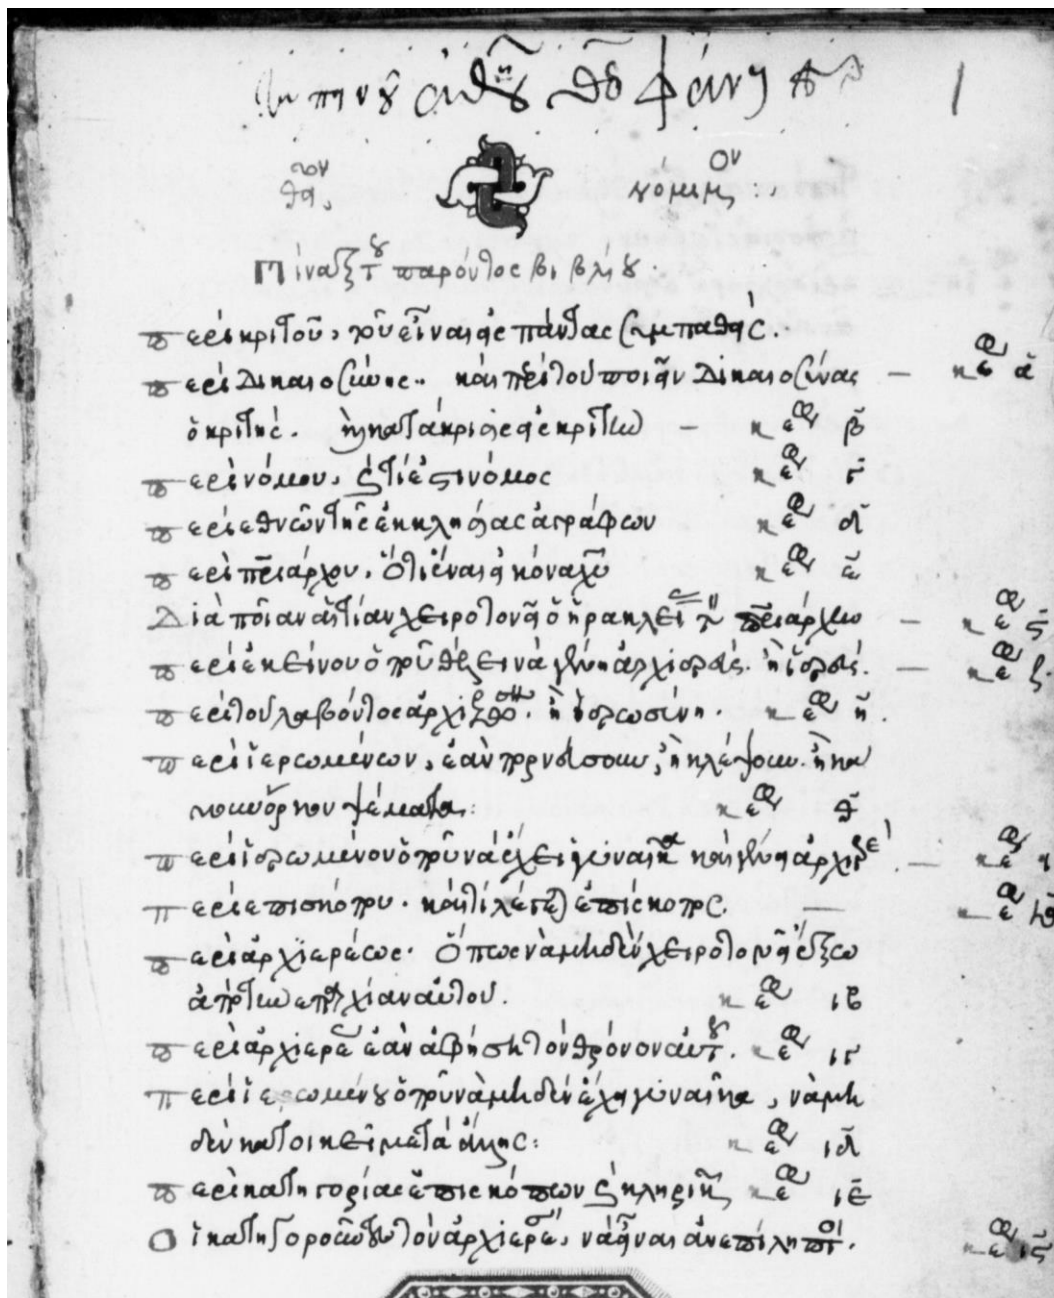 1
νόμιμον
Πίναξ τοῦ παρόντος βιβλίου
Περὶ κριτοῦ, ποῦ εἶναι εἰς πάντας συμπαθής.
Περὶ δικαιοσύνης. καὶ περὶ τοῦ ποιεῖν δικαιοσύνας — κεφ α
ὁ κριτής. ἢ κατακρίσεις κριτῶν — κεφ β
Περὶ νόμου, καὶ τί ἐστι νόμος κεφ γ
Περὶ ἐθνῶν τῆς ἐκκλησίας ἀγράφων κεφ δ
Περὶ πατριάρχου. ὅτι ἔναι εἰκόνα χυ κεφ ε
Διὰ ποίαν αἰτίαν χειροτονεῖ ὁ ἡρακλείας τὸν πατριάρχην — κεφ ς
Περὶ ἐκείνου ὁποῦ θέλει νὰ γένῃ ἀρχιερεύς. ἢ ἱερεύς. — κεφ ζ
Περὶ τοῦ λαβόντος ἀρχιερωσύνη. ἢ ἱερωσύνη. κεφ η
Περὶ ἱερωμένων, ἐὰν πορνεύσουν, ἢ κλέψουν. ἢ κα
κεφ θ
Περὶ ἱερωμένου ὁποῦ νὰ ἔχει γυναῖκα καὶ γένῃ ἀρχιερεύς — κεφ ι
Περὶ ἐπισκόπου. καὶ τί λέγεται ἐπίσκοπος. — κεφ ια
Περὶ ἀρχιερέως. ὅπως νὰ μηδὲν χειροτονεῖ ἔξω
ἀπὸ τὴν ἐπαρχίαν αὐτοῦ. κεφ ιβ
Περὶ ἀρχιερέως ἐὰν ἀφήσῃ τὸν θρόνον αὐτοῦ. κεφ ιγ
Περὶ ἱερωμένου ὁποῦ νὰ μηδὲν ἔχῃ γυναῖκα, νὰ μη
δὲν κατοικεῖ μετὰ ἄλλης: κεφ ιδ
Περὶ κατηγορίας ἐπισκόπων καὶ κληρικῶν κεφ ιε
Οἱ κατηγοροῦντων τὸν ἀρχιερέα, νὰ εἶναι ἀνεπίληπτοι. κεφ ις